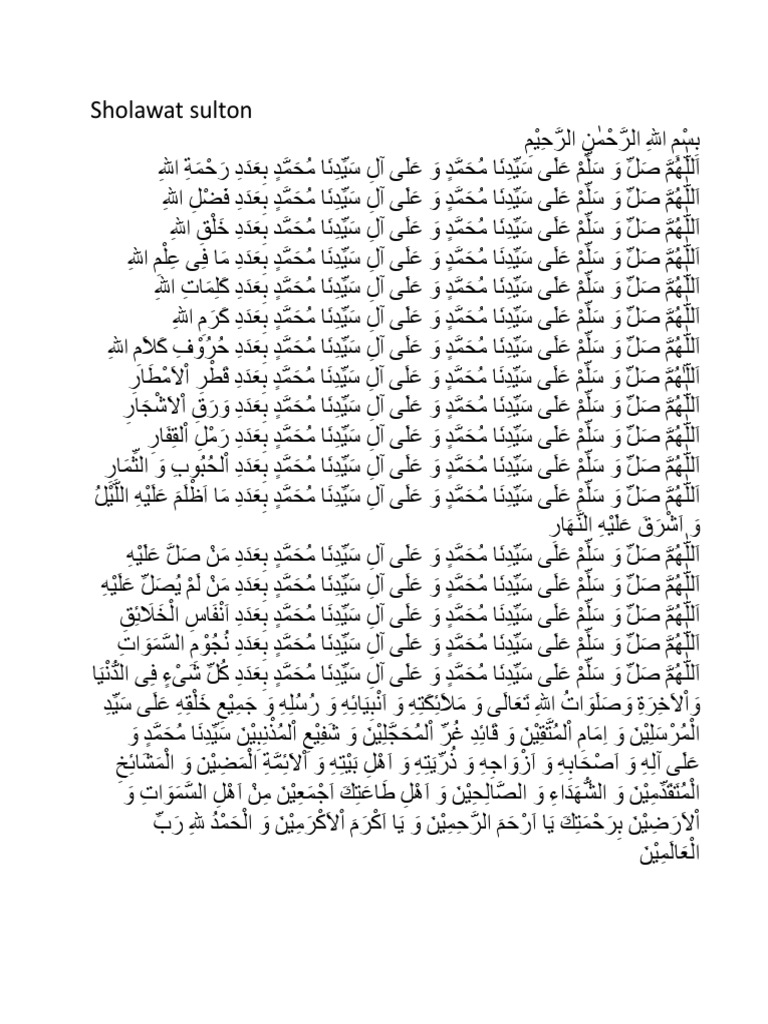 Sholawat sulton
بِسْمِ اللهِ الرَّحْمٰنِ الرَّحِيْمِ
اَللّٰهُمَّ صَلِّ وَ سَلِّمْ عَلَى سَيِّدِنَا مُحَمَّدٍ وَ عَلَى آلِ سَيِّدِنَا مُحَمَّدٍ بِعَدَدِ رَحْمَةِ اللهِ
اَللّٰهُمَّ صَلِّ وَ سَلِّمْ عَلَى سَيِّدِنَا مُحَمَّدٍ وَ عَلَى آلِ سَيِّدِنَا مُحَمَّدٍ بِعَدَدِ فَضْلِ اللهِ
اَللّٰهُمَّ صَلِّ وَ سَلِّمْ عَلَى سَيِّدِنَا مُحَمَّدٍ وَ عَلَى آلِ سَيِّدِنَا مُحَمَّدٍ بِعَدَدِ خَلْقِ اللهِ
اَللّٰهُمَّ صَلِّ وَ سَلِّمْ عَلَى سَيِّدِنَا مُحَمَّدٍ وَ عَلَى آلِ سَيِّدِنَا مُحَمَّدٍ بِعَدَدِ مَا فِى عِلْمِ اللهِ
اَللّٰهُمَّ صَلِّ وَ سَلِّمْ عَلَى سَيِّدِنَا مُحَمَّدٍ وَ عَلَى آلِ سَيِّدِنَا مُحَمَّدٍ بِعَدَدِ كَلِمَاتِ اللهِ
اَللّٰهُمَّ صَلِّ وَ سَلِّمْ عَلَى سَيِّدِنَا مُحَمَّدٍ وَ عَلَى آلِ سَيِّدِنَا مُحَمَّدٍ بِعَدَدِ كَرَمِ اللهِ
اَللّٰهُمَّ صَلِّ وَ سَلِّمْ عَلَى سَيِّدِنَا مُحَمَّدٍ وَ عَلَى آلِ سَيِّدِنَا مُحَمَّدٍ بِعَدَدِ حُرُوْفِ كَلاَمِ اللهِ
اَللّٰهُمَّ صَلِّ وَ سَلِّمْ عَلَى سَيِّدِنَا مُحَمَّدٍ وَ عَلَى آلِ سَيِّدِنَا مُحَمَّدٍ بِعَدَدِ قَطْرِ اْلاَمْطَارِ
اَللّٰهُمَّ صَلِّ وَ سَلِّمْ عَلَى سَيِّدِنَا مُحَمَّدٍ وَ عَلَى آلِ سَيِّدِنَا مُحَمَّدٍ بِعَدَدِ وَرَقِ اْلاَشْجَارِ
اَللّٰهُمَّ صَلِّ وَ سَلِّمْ عَلَى سَيِّدِنَا مُحَمَّدٍ وَ عَلَى آلِ سَيِّدِنَا مُحَمَّدٍ بِعَدَدِ رَمْلِ اْلقِفَارِ
اَللّٰهُمَّ صَلِّ وَ سَلِّمْ عَلَى سَيِّدِنَا مُحَمَّدٍ وَ عَلَى آلِ سَيِّدِنَا مُحَمَّدٍ بِعَدَدِ اْلحُبُوبِ وَ الثِّمَارِ
اَللّٰهُمَّ صَلِّ وَ سَلِّمْ عَلَى سَيِّدِنَا مُحَمَّدٍ وَ عَلَى آلِ سَيِّدِنَا مُحَمَّدٍ بِعَدَدِ مَا اَظْلَمَ عَلَيْهِ اللَّيْلُ
وَ اَشْرَقَ عَلَيْهِ النَّهَارِ
اَللّٰهُمَّ صَلِّ وَ سَلِّمْ عَلَى سَيِّدِنَا مُحَمَّدٍ وَ عَلَى آلِ سَيِّدِنَا مُحَمَّدٍ بِعَدَدِ مَنْ صَلَّ عَلَيْهِ
اَللّٰهُمَّ صَلِّ وَ سَلِّمْ عَلَى سَيِّدِنَا مُحَمَّدٍ وَ عَلَى آلِ سَيِّدِنَا مُحَمَّدٍ بِعَدَدِ مَنْ لَمْ يُصَلِّ عَلَيْهِ
اَللّٰهُمَّ صَلِّ وَ سَلِّمْ عَلَى سَيِّدِنَا مُحَمَّدٍ وَ عَلَى آلِ سَيِّدِنَا مُحَمَّدٍ بِعَدَدِ اَنْفَاسِ الْخَلَائِقِ
اَللّٰهُمَّ صَلِّ وَ سَلِّمْ عَلَى سَيِّدِنَا مُحَمَّدٍ وَ عَلَى آلِ سَيِّدِنَا مُحَمَّدٍ بِعَدَدِ نُجُوْمِ السَّمَوَاتِ
اَللّٰهُمَّ صَلِّ وَ سَلِّمْ عَلَى سَيِّدِنَا مُحَمَّدٍ وَ عَلَى آلِ سَيِّدِنَا مُحَمَّدٍ بِعَدَدِ كُلِّ شَىْءٍ فِى الدُّنْيَا
وَاْلاَخِرَةِ وَصَلَوَاتُ اللهِ تَعَالَى وَ مَلاَئِكَتِهِ وَ اَنْبِيَائِهِ وَ رُسُلِهِ وَ جَمِيْعِ خَلْقِهِ عَلَى سَيِّدِ
الْمُرْسَلِيْنَ وَ اِمَامِ اْلمُتَّقِيْنَ وَ قَائِدِ غُرِّ اْلمُحَجَّلِيْنَ وَ شَفِيْعِ اْلمُذْنِبِيْنَ سَيِّدِنَا مُحَمَّدٍ وَ
عَلَى آلِهِ وَ اَصْحَابِهِ وَ اَزْوَاجِهِ وَ ذُرِّيَتِهِ وَ اَهْلِ بَيْتِهِ وَ اْلاَئِمَّةِ اْلمَضِيْنَ وَ الْمَشَائِخِ
الْمُتَقَدِّمِيْنَ وَ الشُّهَدَاءِ وَ الصَّالِحِيْنَ وَ اَهْلِ طَاعَتِكَ اَجْمَعِيْنَ مِنْ اَهْلِ السَّمَوَاتِ وَ
اْلاَرَضِيْنَ بِرَحْمَتِكَ يَا اَرْحَمَ الرَّحِمِيْنَ وَ يَا اَكْرَمَ اْلاَكْرَمِيْنَ وَ الْحَمْدُ للهِ رَبِّ
الْعَالَمِيْنَ